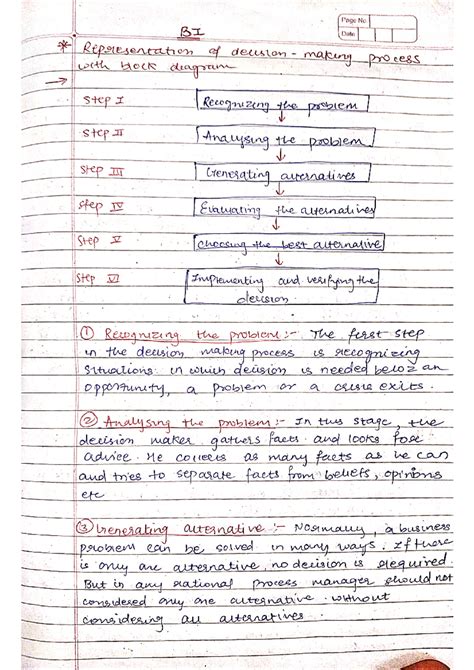 BI
Page No.
Date
* Representation of decision-making process
with block diagram
→
Step I Recognizing the problem
Step II Analysing the problem
Step III Generating alternatives
Step IV Evaluating the alternatives
Step V choosing the best alternative
Step VI Implementing and verifying the
decision
① Recognizing the problem :- The first step
in the decision making process is recognizing
situations in which decision is needed becoz an
opportunity, a problem or a crisis exits.
② Analysing the problem :- In this stage, the
decision maker gathers facts and looks for
advice. He collects as many facts as he can
and tries to separate facts from beliefs, opinions
etc
③ Generating alternative :- Normally, a business
problem can be solved in many ways. If there
is only one alternative, no decision is required.
But in any rational process manager should not
considered any one alternative without
considering all alternatives.